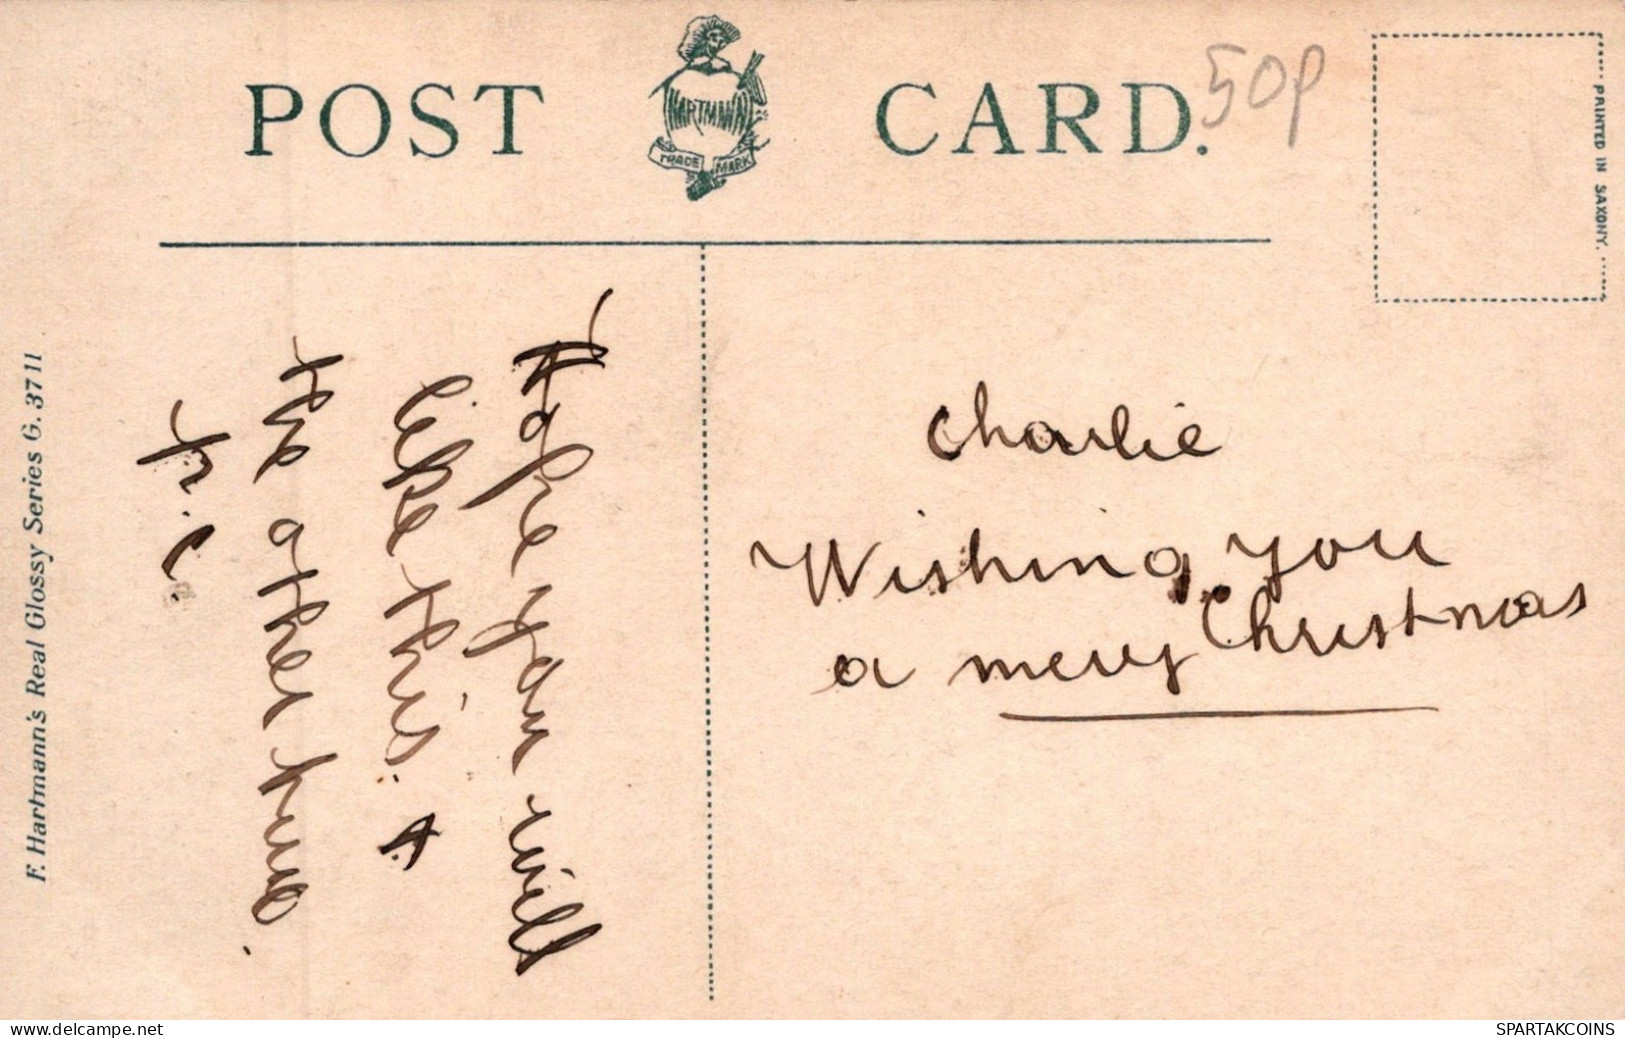 POST CARD.
HARTMANN
TRADE MARK
50p
PRINTED IN SAXONY.
F. Hartmann's Real Glossy Series G. 3711
Hope you will
like this. &
the other two.
h. c.
Charlie
Wishing you
a merry Christmas
www.delcampe.net
SPARTAKCOINS